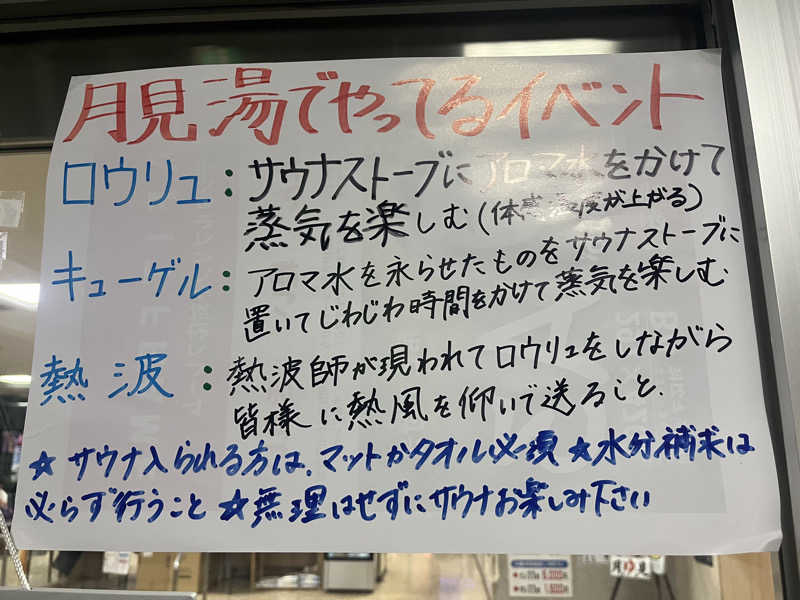 月見湯でやってるイベント
ロウリュ：サウナストーブにアロマ水をかけて
蒸気を楽しむ（体感温度が上がる）
キューゲル：アロマ水を氷らせたものをサウナストーブに
置いてじわじわ時間をかけて蒸気を楽しむ.
熱波：熱波師が現われてロウリュをしながら
皆様に熱風を仰いで送ること.
☆サウナ入られる方は、マットかタオル必須☆水分補求は
必らず行うこと☆無理はせずにサウナお楽しみ下さい
月ゆ見